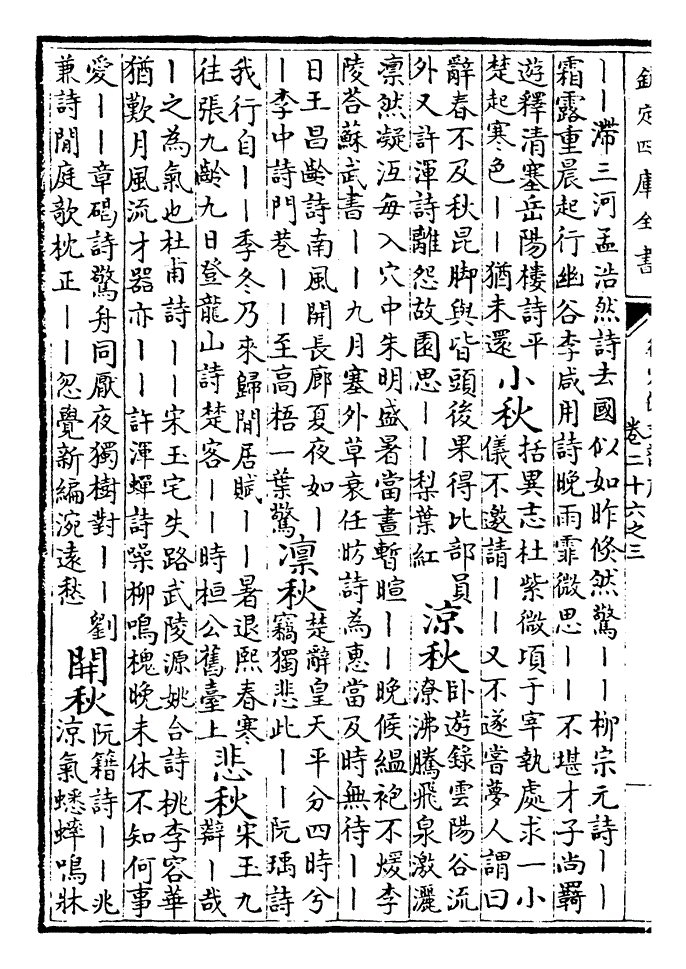 欽定四庫全書
卷二十六之三
｜｜滯三河孟浩然詩去國似如昨倏然驚｜｜柳宗元詩｜｜
霜露重晨起行幽谷李咸用詩晚雨霏微思｜｜不堪才子尚羈
遊釋清塞岳陽樓詩平
楚起寒色｜｜猶未還
小秋
括異志杜紫微頃于宰執處求一小
儀不邀請｜｜又不遂嘗夢人謂曰
辭春不及秋昆脚與皆頭後果得比部員
外又許渾詩離怨故園思｜｜梨葉紅
涼秋
卧遊錄雲陽谷流
潦沸騰飛泉激灑
凛然凝沍每入穴中朱明盛暑當晝暫暄｜｜晚候緼袍不煖李
陵荅蘇武書｜｜九月塞外草衰任昉詩為惠當及時無待｜｜
日王昌齡詩南風開長廊夏夜如｜
｜李中詩門巷｜｜至高梧一葉驚
凛秋
楚辭皇天平分四時兮
竊獨悲此｜｜阮瑀詩
我行自｜｜季冬乃來歸閒居賦｜｜暑退熙春寒
往張九齡九日登龍山詩楚客｜｜時桓公舊臺上
悲秋
宋玉九
辯｜哉
｜之為氣也杜甫詩｜｜宋玉宅失路武陵源姚合詩桃李容華
猶歎月風流才器亦｜｜許渾蟬詩噪柳鳴槐晚未休不知何事
愛｜｜章碣詩驚舟同厭夜獨樹對｜｜劉
兼詩閒庭欹枕正｜｜忽覺新編浣遠愁
開秋
阮籍詩｜｜兆
涼氣蟋蟀鳴牀